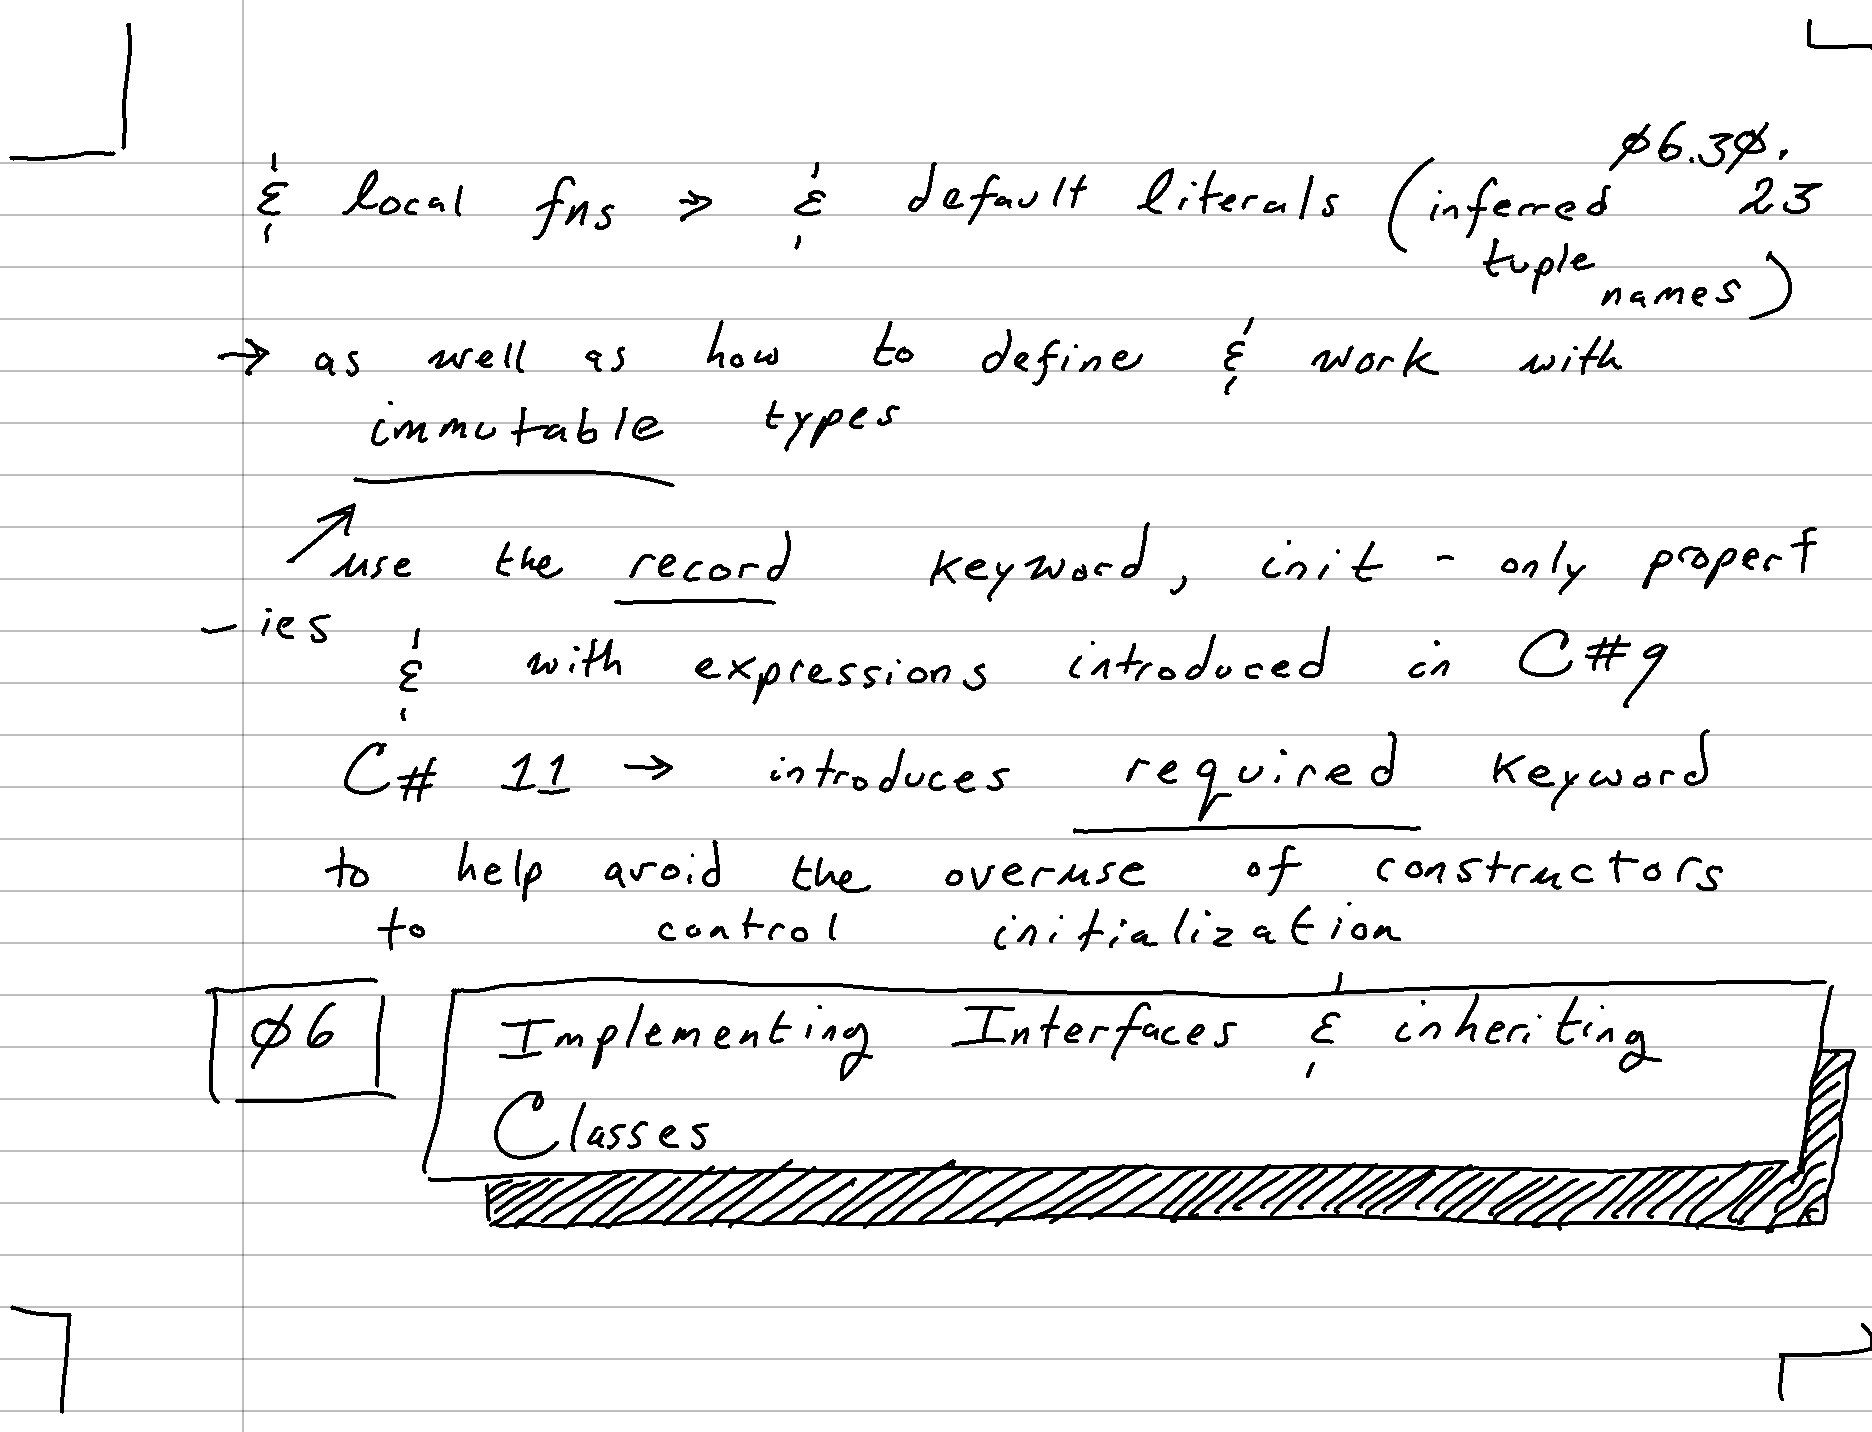 ø6.3ø.
& local fns → & default literals (inferred 23
tuple
names)
→ as well as how to define & work with
immutable types
use the record keyword, init - only propert
- ies
& with expressions introduced in C#9
C# 11 → introduces required keyword
to help avoid the overuse of constructors
to control initialization
ø6 Implementing Interfaces & inheriting
Classes